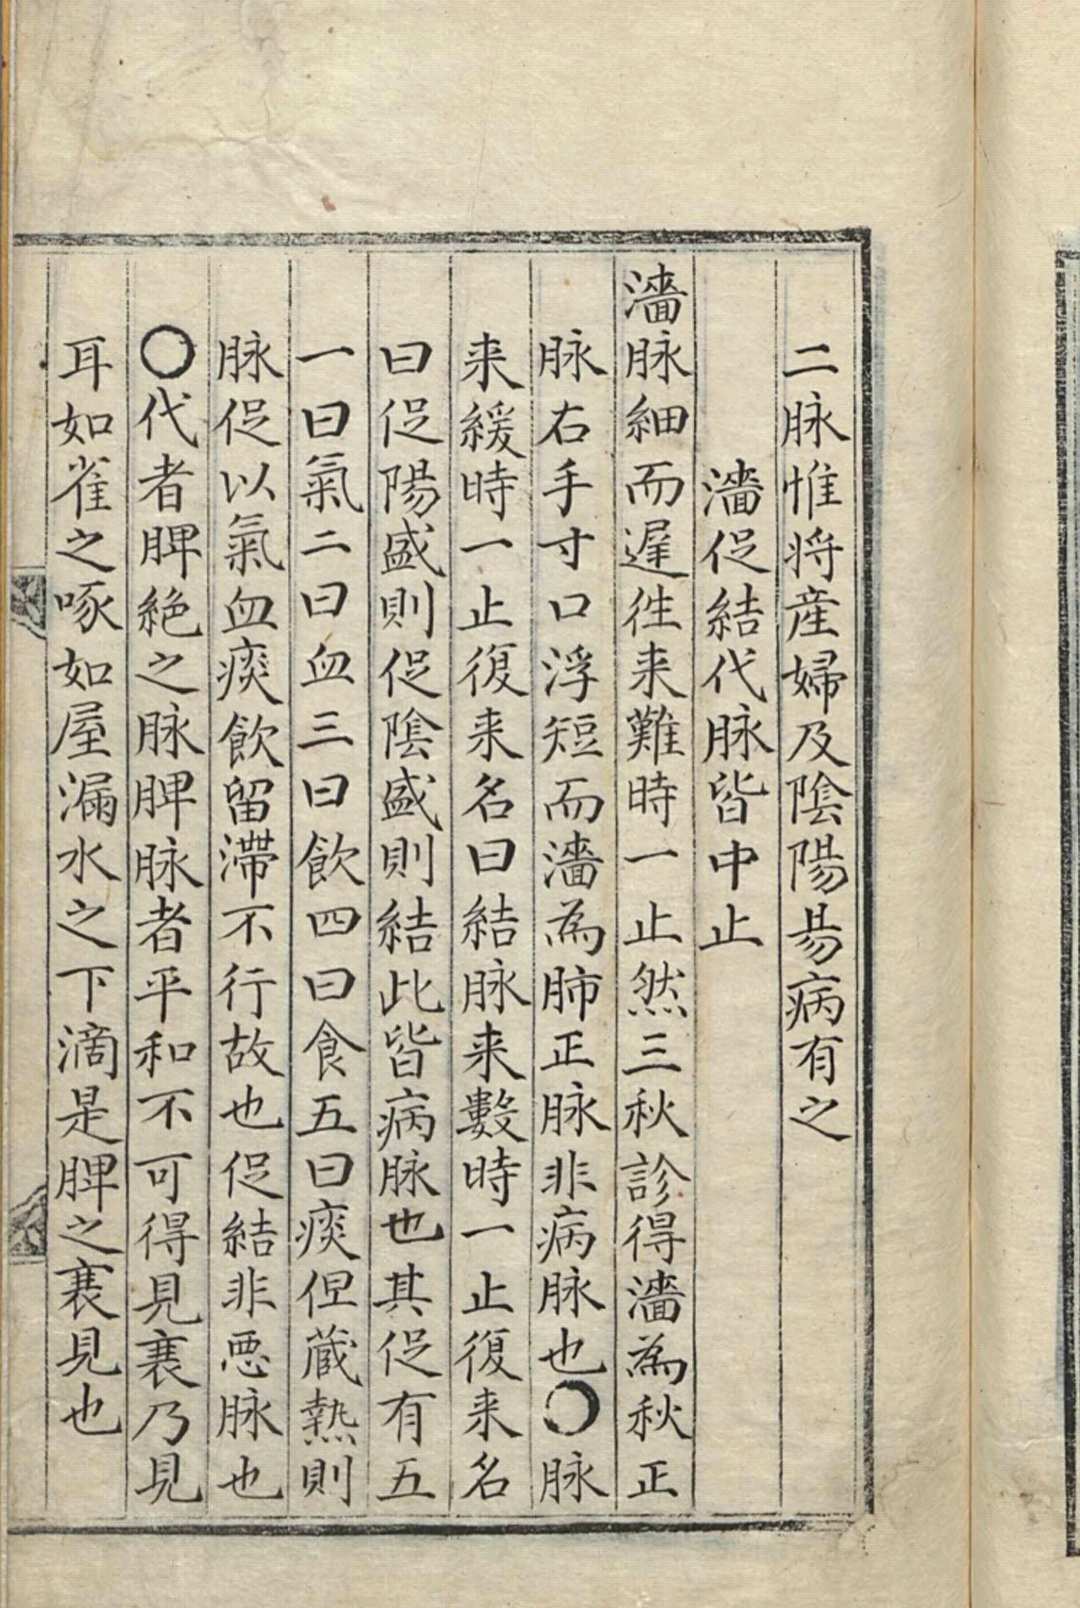 二脉惟將産婦及陰陽昜病有之
濇促結代脉皆中止
濇脉細而遲徃来難時一止然三秋診得濇為秋正
脉右手寸口浮短而濇為肺正脉非病脉也〇脉
来緩時一止復来名曰結脉来數時一止復来名
曰促陽盛則促陰盛則結此皆病脉也其促有五
一曰氣二曰血三曰飲四曰食五曰痰但蔵熱則
脉促以氣血痰飲留滯不行故也促結非悪脉也
〇代者脾絶之脉脾脉者平和不可得見衰乃見
耳如雀之啄如屋漏水之下滴是脾之衰見也